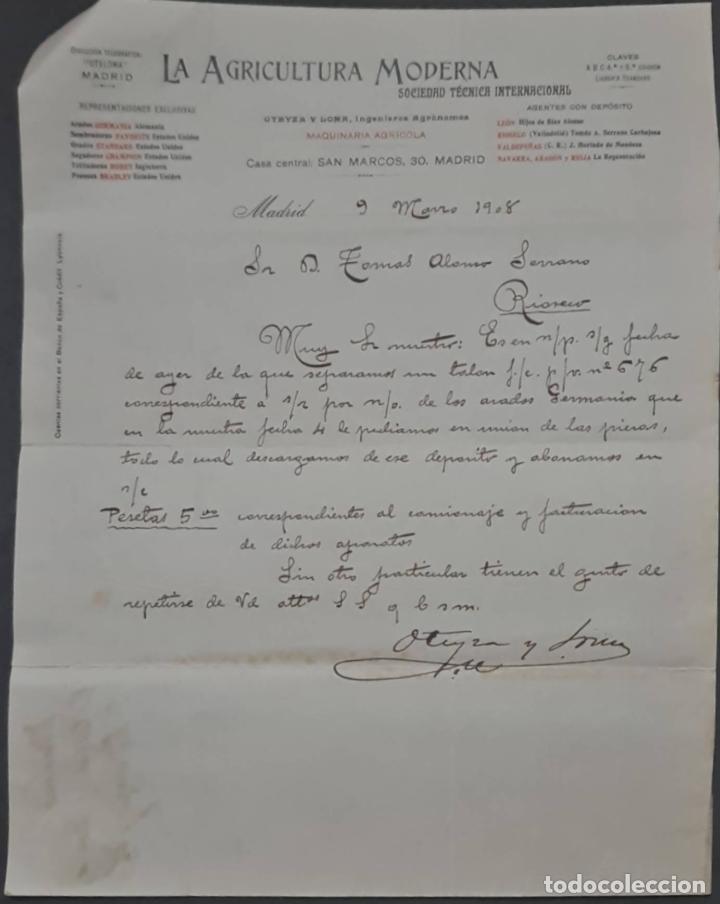 DIRECCIÓN TELEGRÁFICA:
"OTYLOMA"
MADRID
LA AGRICULTURA MODERNA
SOCIEDAD TÉCNICA INTERNACIONAL
CLAVES
A B C 4ª Y 5ª EDICIÓN
REPRESENTACIONES EXCLUSIVAS
Arados GERMANIA Alemania
Sembradoras FAVORITE Estados Unidos
Gradas STANDARD Estados Unidos
Segadoras CHAMPION Estados Unidos
Trilladoras ROBEY Inglaterra
Prensas BRADLEY Estados Unidos
OTEYZA Y LOMA, Ingenieros Agrónomos
MAQUINARIA AGRÍCOLA
Casa central: SAN MARCOS, 30, MADRID
AGENTES CON DEPÓSITO
LEÓN Hijos de Blas Alonso
RIOSECO (Valladolid) Tomás A. Serrano Carbajosa
VALDEPEÑAS (C. R.) J. Hurtado de Mendoza
NAVARRA, ARAGÓN y RIOJA La Regeneración
Cuentas corrientes en el Banco de España y Crédit Lyonnais
Madrid 9 Marzo 1908
Sr D. Tomas Alonso Serrano
Rioseco
Muy Sr nuestro: Es en n/p. s/g fecha
de ayer de la que separamos un talon f.c. p/v. nº 676
correspondiente á s/r por n/o. de los arados Germania que
en la nuestra fecha 4 le pediamos en union de las piezas,
todo lo cual descargamos de ese deposito y abonamos en
s/c
Pesetas 5 correspondientes al camionaje y facturacion
de dichos aparatos
Sin otro particular tienen el gusto de
repetirse de Vd attos S S q b s m.
Oteyza y Loma
todocoleccion
todocoleccion.net